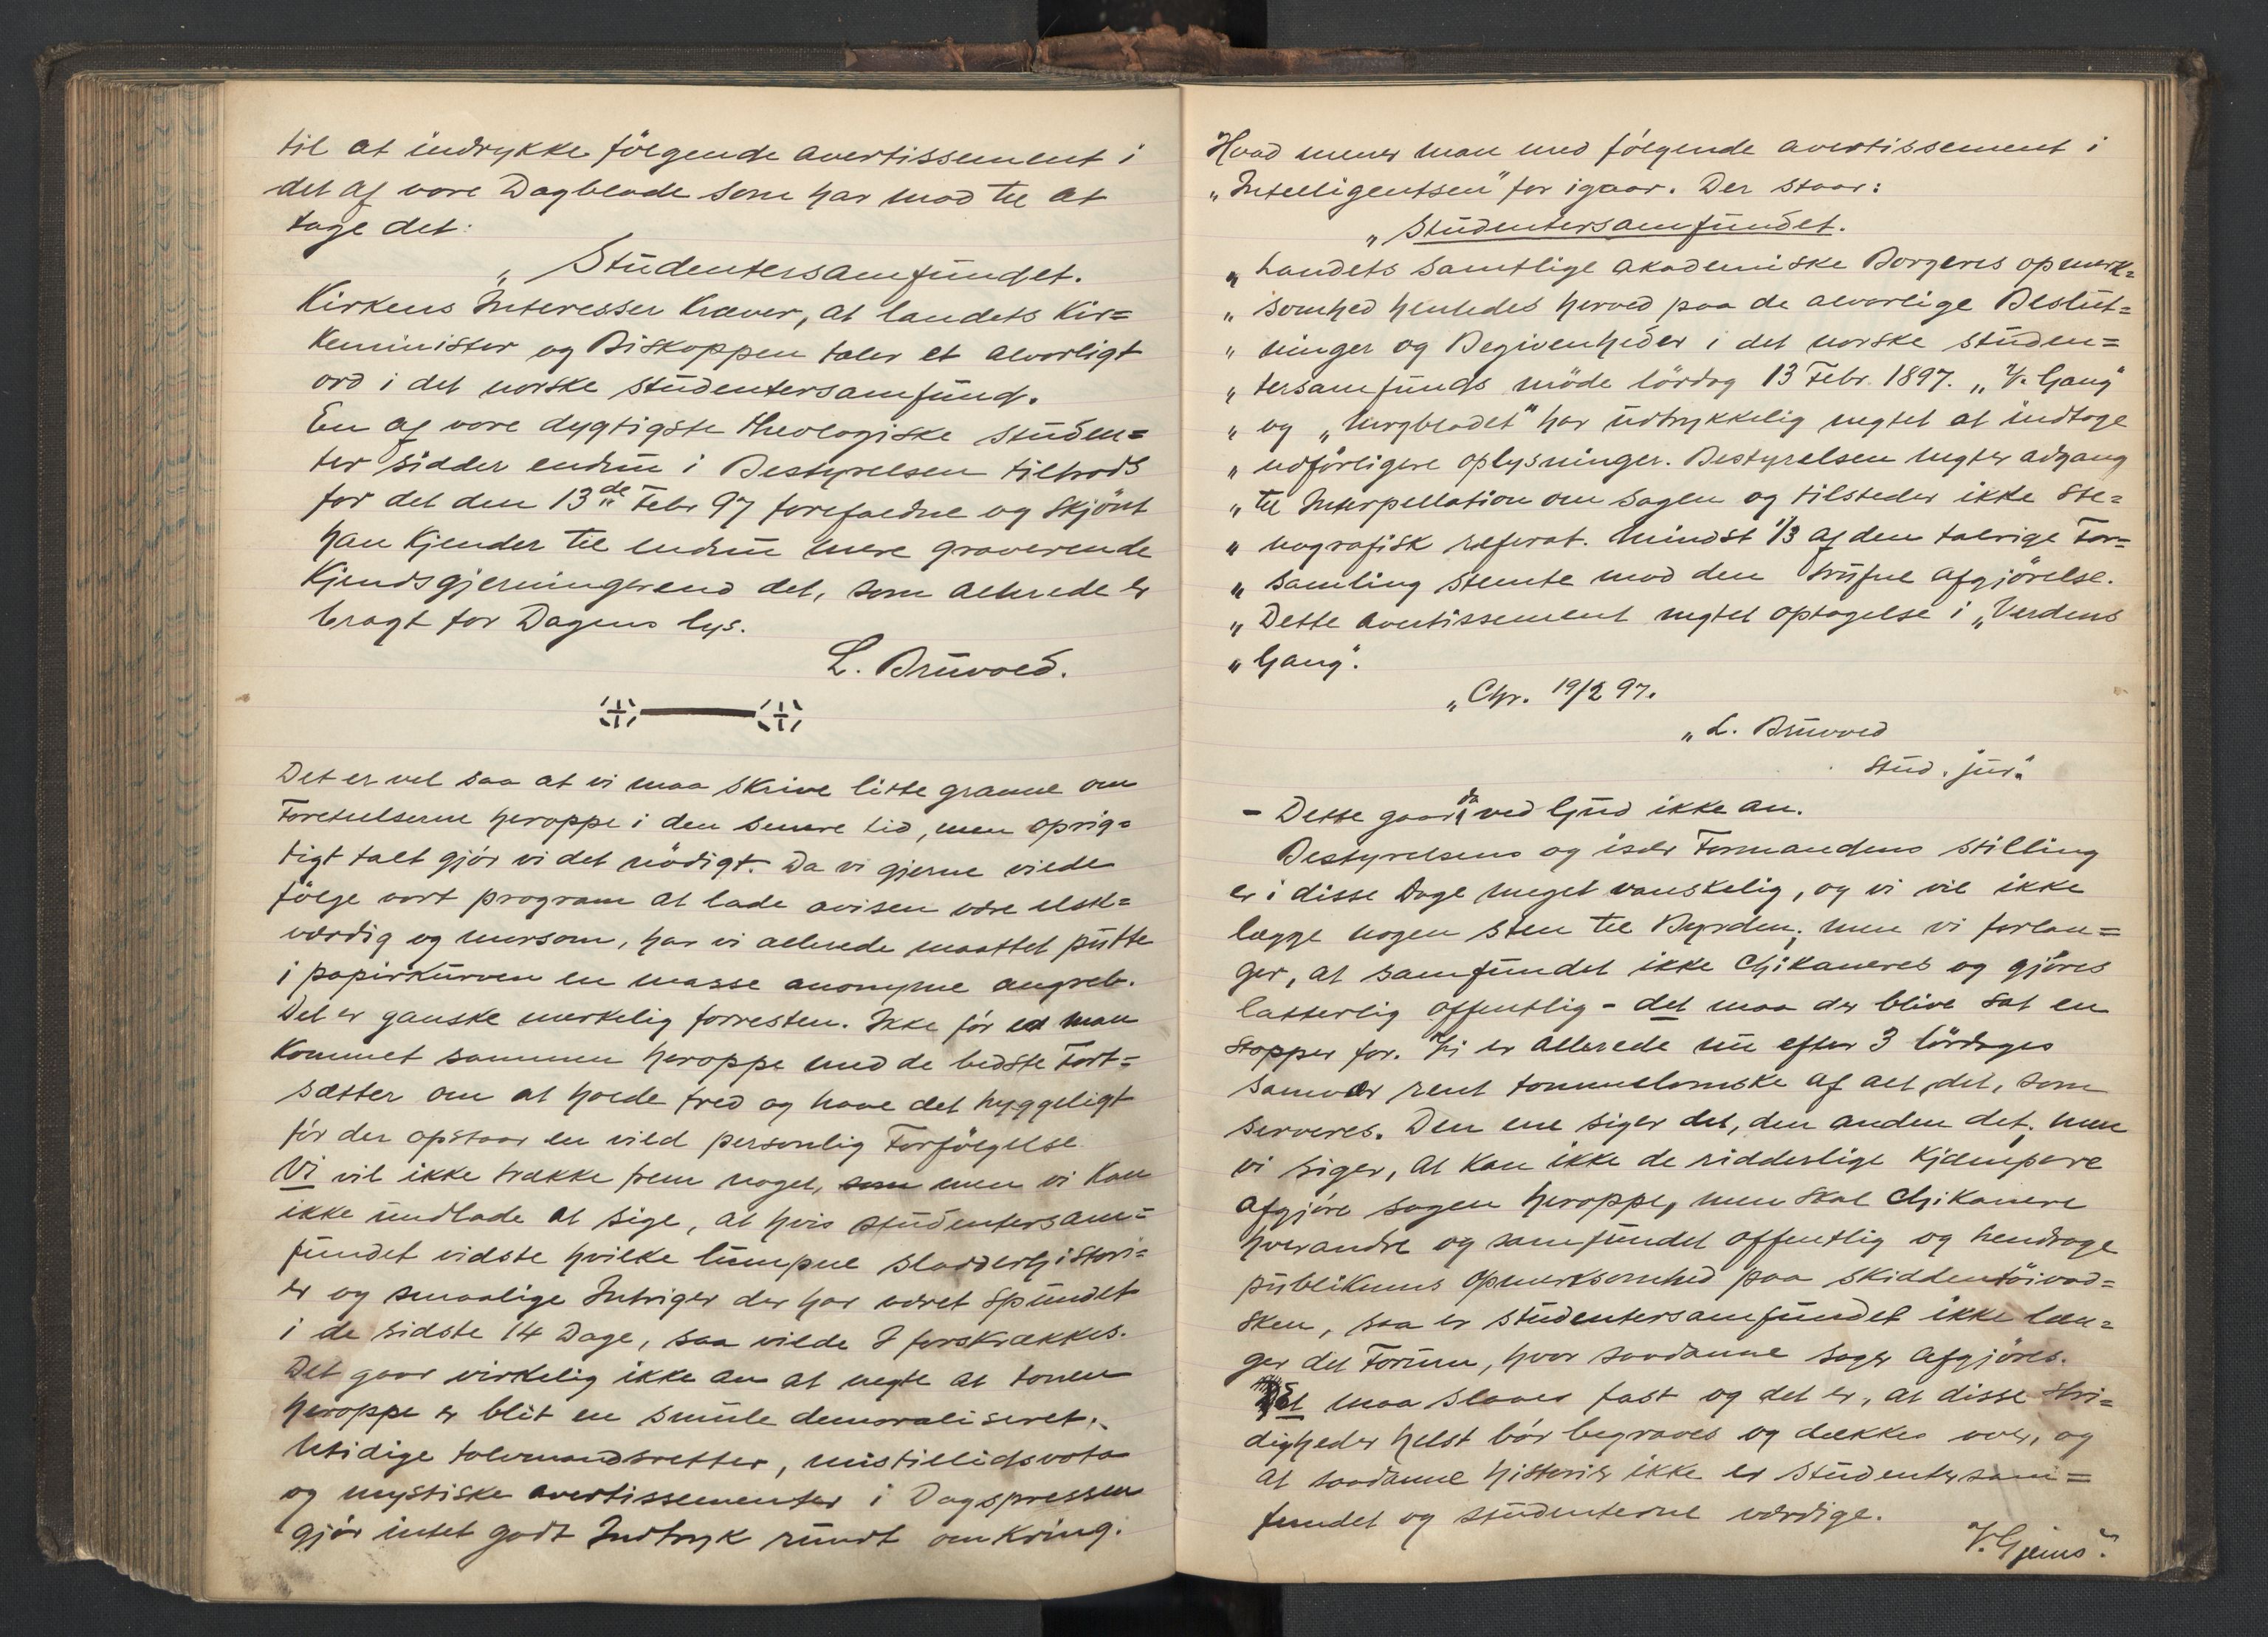 til at indrykke følgende avertissement i
det af vore Dagblade som har mod til at
tage det:
„Studentersamfundet.
Kirkens Interesser kræver, at landets Kir=
keminister og Biskoppen taler et alvorligt
ord i det norske studentersamfund.
En af vore dygtigste theologiske studen=
ter sidder endnu i Bestyrelsen tiltrods
for det den 13de Febr 97 forefaldne og skjønt
han kjender til endnu mere graverende
Kjendsgjerninger end det, som allerede er
bragt for Dagens lys.
L. Bruvold.
Det er vel saa at vi maa skrive litte granne om
Foreteelserne heroppe i den senere tid, men oprig=
tigt talt gjør vi det nødigt. Da vi gjerne vilde
følge vort program at lade avisen være elsk=
værdig og morsom, har vi allerede maattet putte
i papirkurven en masse anonyme angreb.
Det er ganske merkelig forresten. Ikke før er man
kommet sammen heroppe med de bedste Fort=
sætter om at holde fred og have det hyggeligt
før der opstaar en vild personlig Forfølgelse.
Vi vil ikke trække frem noget, som men vi kan
ikke undlade at sige, at hvis studentersam=
fundet vidste hvilke lumpne sladderhistori=
er og smaalige Intriger der har været spundet
i de sidste 14 Dage, saa vilde I forskrækkes.
Det gaar virkelig ikke an at negte at tonen
heroppe er blit en smule demoraliseret.
Utidige tolvmandsretter, mistillidsvota
og mystiske avertissementer i Dagspressen
gjør intet godt Indtryk rundt omkring.
Hvad mener man med følgende avertissement i
„Intelligentsen" for igaar. Der staar:
„Studentersamfundet.
„Landets samtlige akademiske Borgeres opmerk=
„somhed henledes herved paa de alvorlige Beslut=
„ninger og Begivenheder i det norske studen=
„tersamfunds møde lørdag 13 Febr. 1897. „V. Gang"
„og „Morgbladet" har udtrykkelig negtet at indtage
„udførligere oplysninger. Bestyrelsen negter adgang
„til Interpellation om sagen og tilsteder ikke ste=
„nografisk referat. Mindst 1/3 af den talrige For=
„samling stemte mod den trufne afgjørelse.
„Dette avertissement negtet optagelse i „Verdens
„Gang".
„Chr. 19/2 97.
„L. Bruvold
Stud. jur."
- Dette gaar da ved Gud ikke an.
Bestyrelsens og især Formandens stilling
er i disse Dage meget vanskelig, og vi vil ikke
lægge nogen sten til Byrden; men vi forlan=
ger, at samfundet ikke chikaneres og gjøres
latterlig offentlig - det maa der blive sat en
stopper for. Vi er allerede nu efter 3 lørdages
samvær rent tommelomske af alt det, som
serveres. Den ene siger det, den anden det; men
vi siger, at kan ikke de ridderlige kjæmpere
afgjøre sagen heroppe, men skal chikanere
hverandre og samfundet offentlig og hendrage
publikums opmerksomhed paa skiddentøivad=
sken, saa er studentersamfundet ikke læn=
ger det Forum, hvor saadanne sager afgjøres.
Det maa slaaes fast og det er, at disse stri=
digheder helst bør begraves og dækkes over, og
at saadanne historier ikke er studentersam=
fundet og studenterne værdige.
V. Gjems".